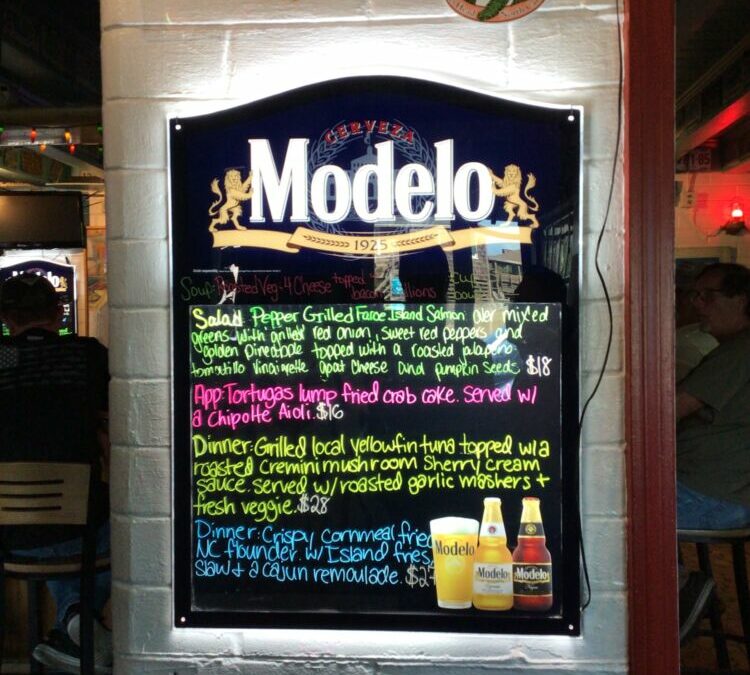 CERVEZA
Modelo
1925
Soup: Roasted Veg-4 Cheese topped
bacon
Salad: Pepper Grilled Faroe Island Salmon over mixed
greens with grilled red onion, sweet red peppers and
golden pineapple topped with a roasted jalapeno-
tomatillo vinaigrette goat cheese and pumpkin seeds $18
App: Tortugas lump fried crab cake. Served w/
a Chipotle Aioli. $16
Dinner: Grilled local yellowfin tuna topped w/a
roasted Cremini mushroom Sherry cream
sauce. served w/roasted garlic mashers +
fresh veggie. $28
Dinner: Crispy cornmeal fried
NC flounder w/Island
slaw + a cajun remoulade.
Modelo
Modelo
Modelo
Modelo